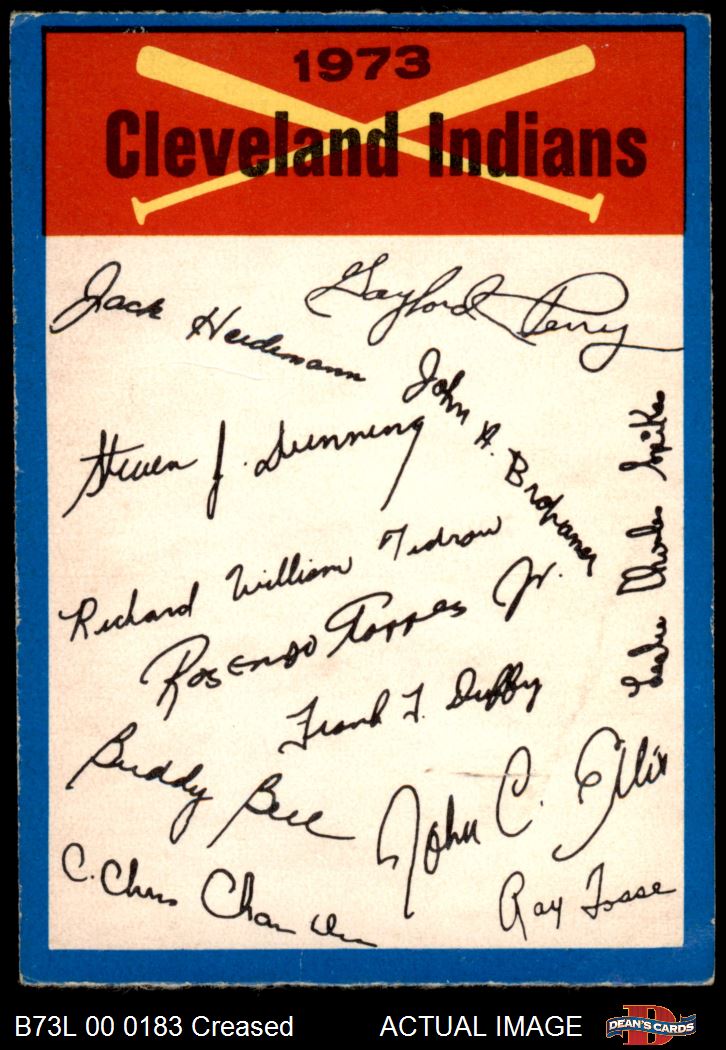 1973
Cleveland Indians
Jack Heidemann
Gaylord Perry
John A. Brohamer
Steven J. Dunning
Leslie Charles Spikes
Richard William Tidrow
Rosendo Torres Jr.
Frank T. Duffy
Buddy Bell
John C. Ellis
C. Chris Cham
Ray Fosse
B73L 00 0183 Creased
ACTUAL IMAGE
D
DEAN'S CARDS